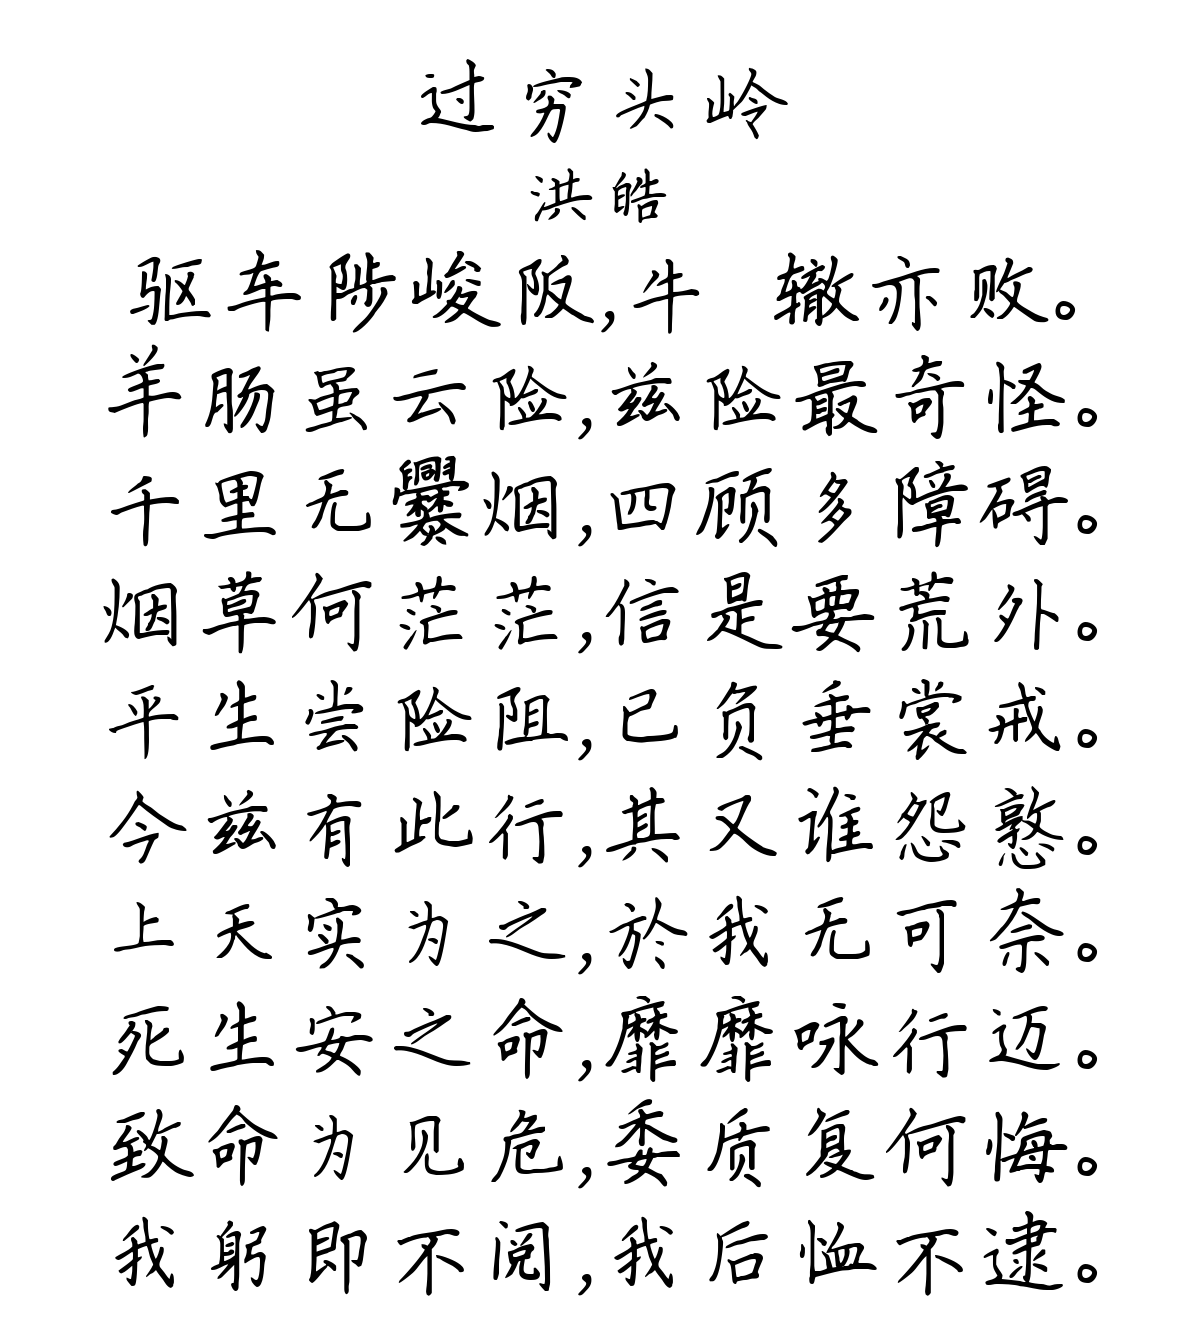 过穷头岭
洪皓
驱车陟峻阪,牛 辙亦败。
羊肠虽云险,兹险最奇怪。
千里无爨烟,四顾多障碍。
烟草何茫茫,信是要荒外。
平生尝险阻,已负垂裳戒。
今兹有此行,其又谁怨憝。
上天实为之,於我无可奈。
死生安之命,靡靡咏行迈。
致命为见危,委质复何悔。
我躬即不阅,我后恤不逮。